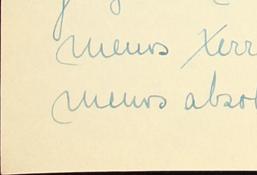 menos Xerr
menos absol